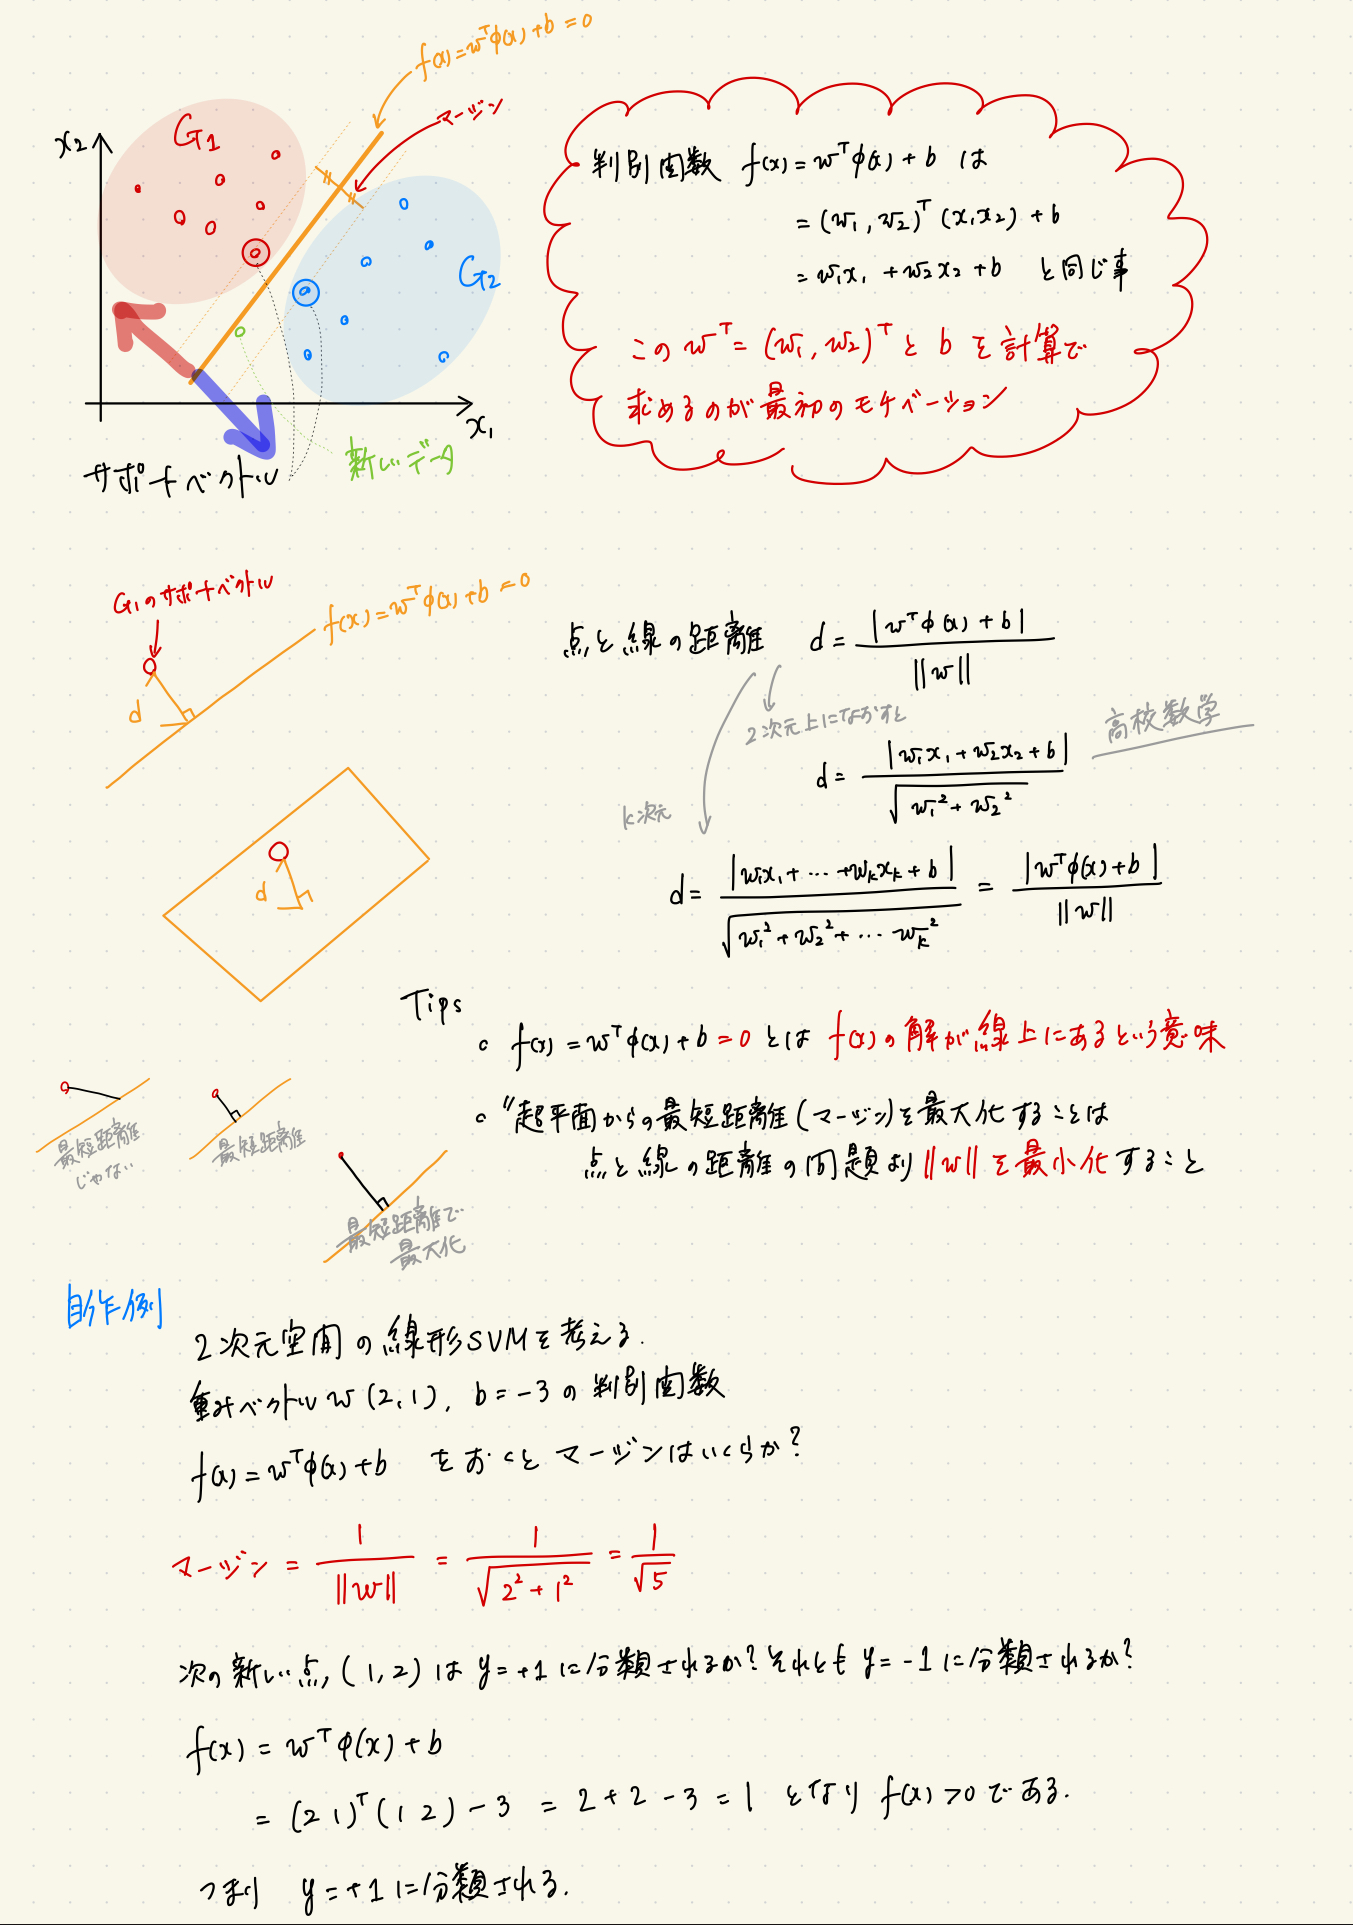 f(x)=w^Tφ(x)+b=0
マージン
x2
G1
G2
x1
サポートベクトル
新しいデータ
判別関数 f(x)=w^Tφ(x)+b は
=(w1,w2)^T(x1x2)+b
=w1x1+w2x2+b と同じ事
この w^T=(w1,w2)^T と b を計算で
求めるのが最初のモチベーション
G1のサポートベクトル
f(x)=w^Tφ(x)+b=0
d
点と線の距離 d=|w^Tφ(x)+b|/||w||
2次元上になおすと
高校数学
d=|w1x1+w2x2+b|/√(w1²+w2²)
k次元
d
d=|w1x1+…+wkxk+b|/√(w1²+w2²+…wk²)=|w^Tφ(x)+b|/||w||
Tips
○ f(x)=w^Tφ(x)+b=0 とは f(x)の解が線上にあるという意味
○ "超平面からの最短距離(マージン)を最大化することは
点と線の距離の問題より||w||を最小化すること
最短距離
じゃない
最短距離
最短距離で
最大化
自作例
2次元空間の線形SVMを考える.
重みベクトルw(2,1), b=-3の判別関数
f(x)=w^Tφ(x)+b をおくとマージンはいくらか?
マージン=1/||w||=1/√(2²+1²)=1/√5
次の新しい点,(1,2)は y=+1に分類されるか?それとも y=-1に分類されるか?
f(x)=w^Tφ(x)+b
=(2 1)^T(1 2)-3=2+2-3=1 となり f(x)>0である.
つまり y=+1に分類される.